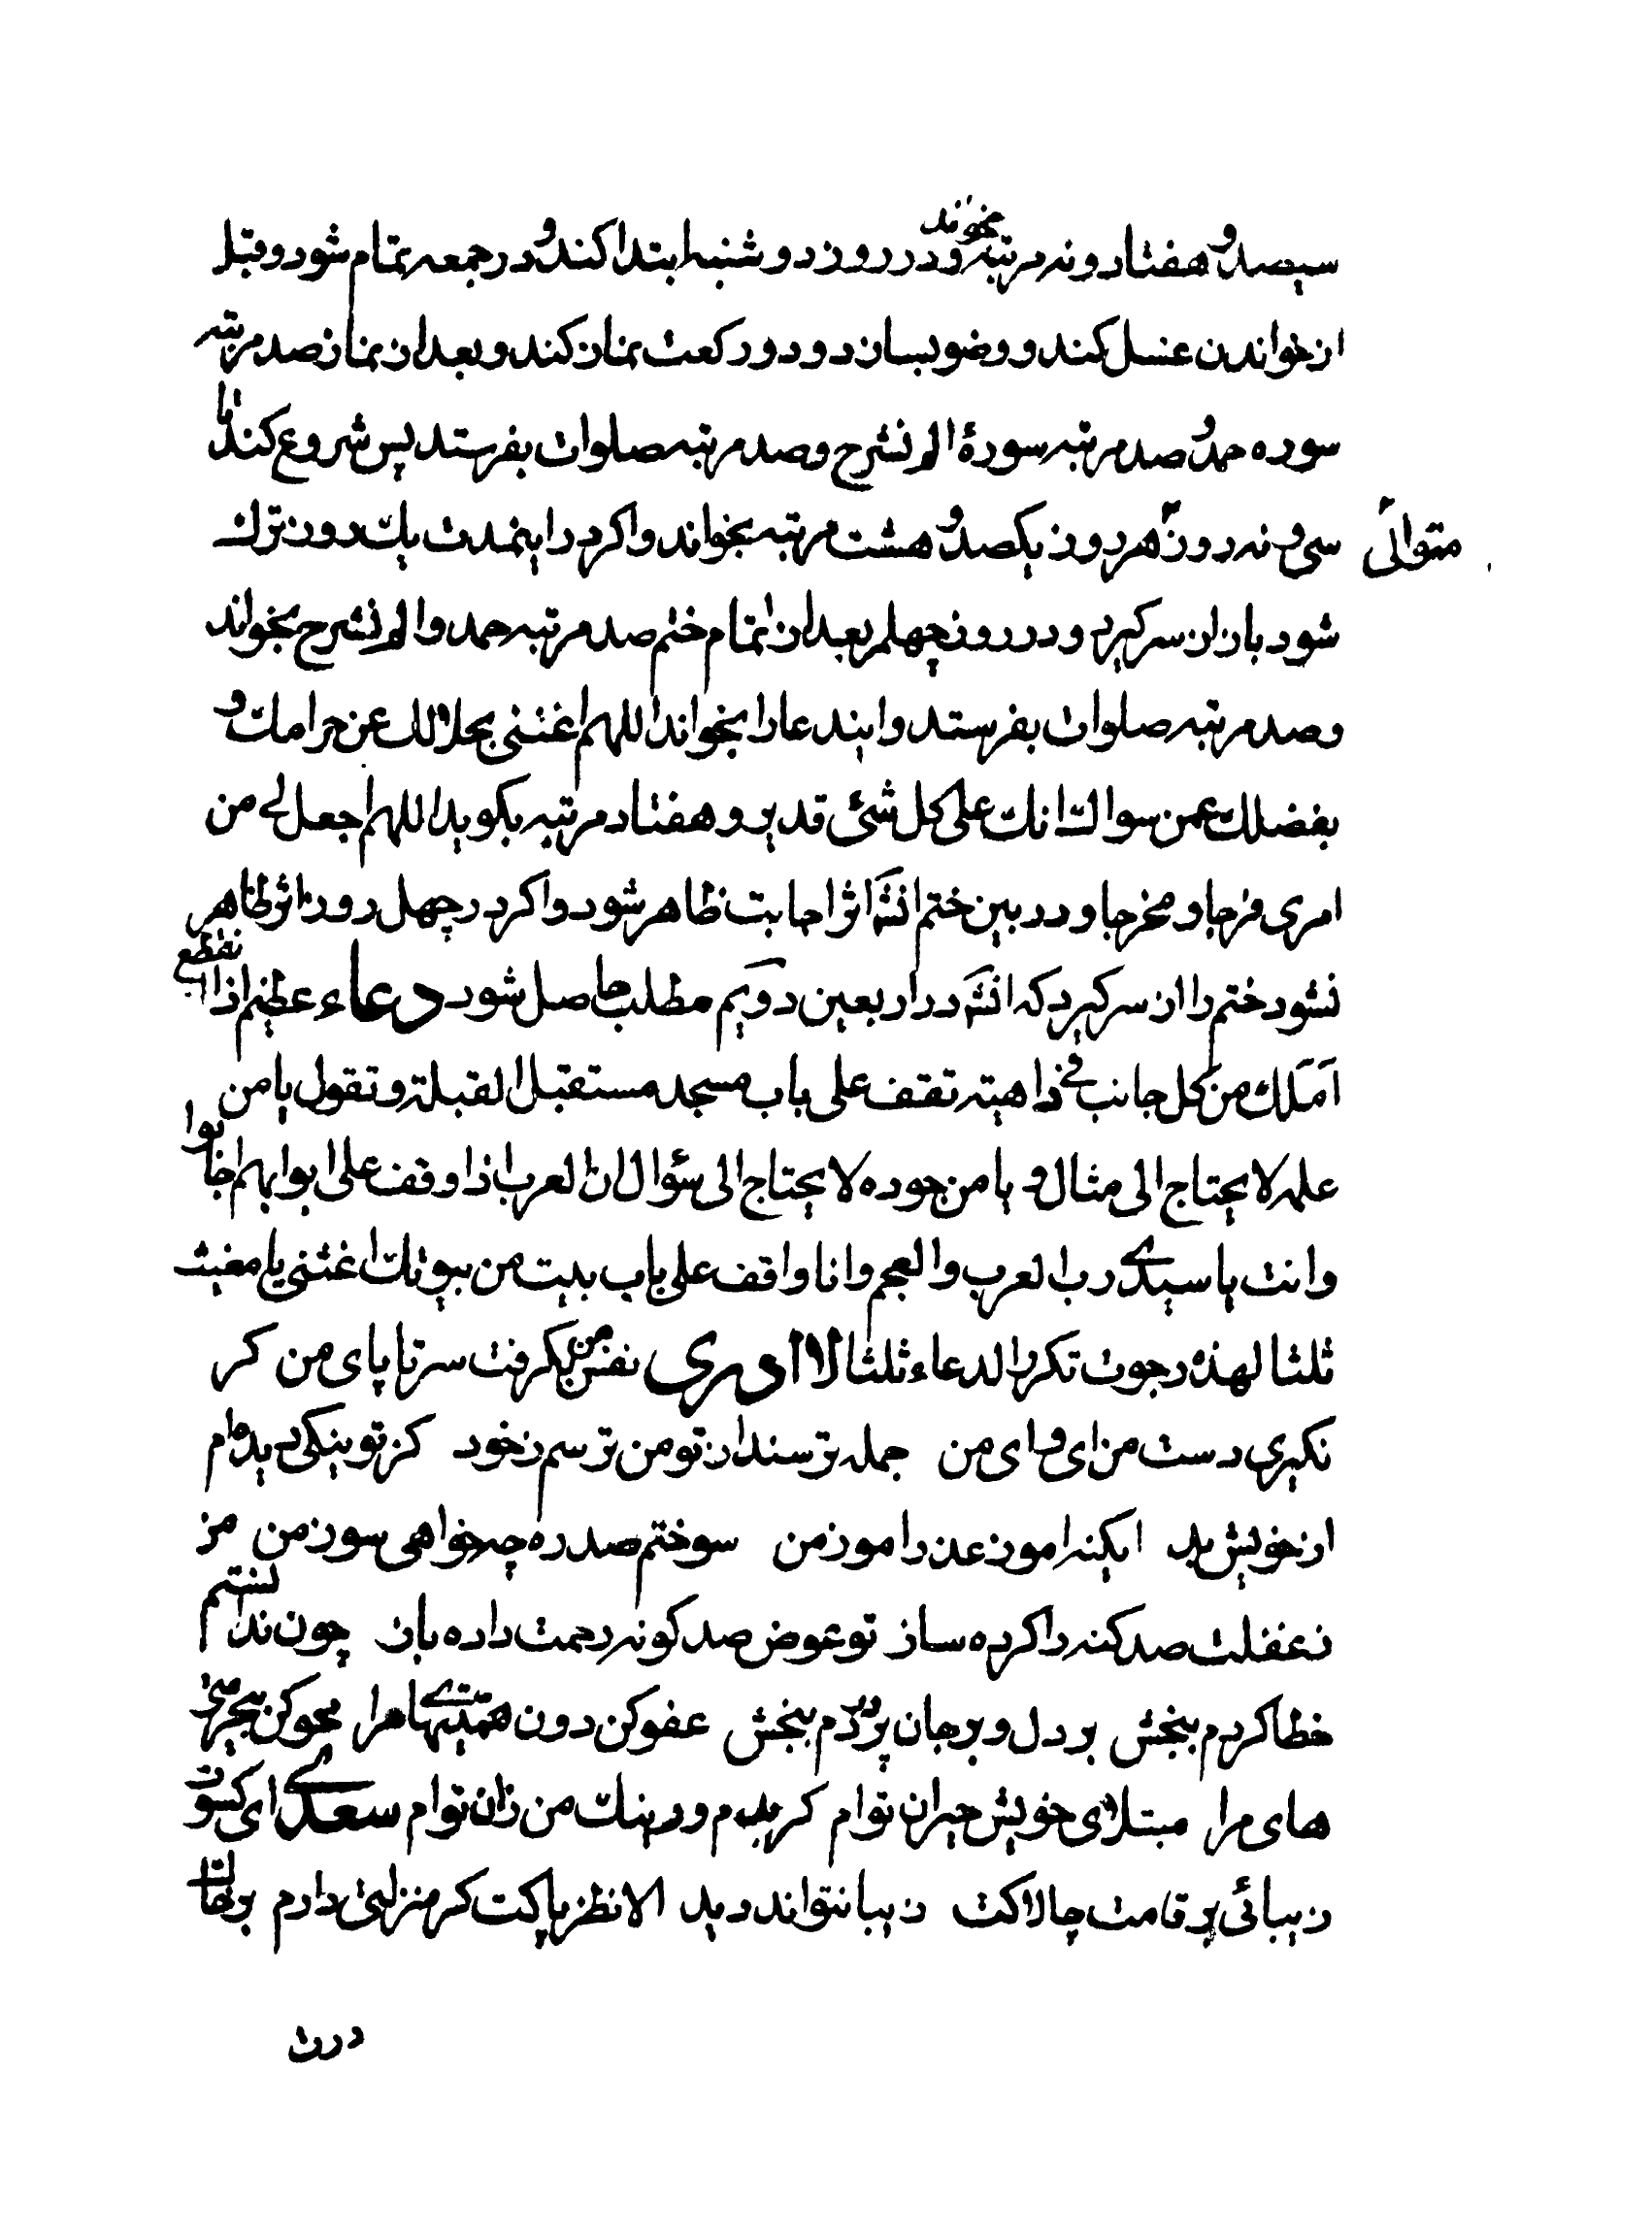 سیصد و هفتاد و نه مرتبه بخواند و در روز دوشنبه ابتدا کند و در جمعه تمام شود و قبل
از خواندن غسل کند و وضو بسازد و دو رکعت نماز کند و بعد از نماز صد مرتبه
سوره حمد و صد مرتبه سورهٔ الم نشرح و صد مرتبه صلوات بفرستد پس شروع کند تا
سی و نه روز متوالی هر روز یکصد و هشت مرتبه بخواند و اکر در اینمدت یك روز ترك
شود باز از سر کیرد و در روز چهلم بعد از اتمام ختم صد مرتبه حمد و الم نشرح بخواند
و صد مرتبه صلوات بفرستد و ایندعا را بخواند اللهم اغننی بحلالك عن حرامك و
بفضلك عمن سواك انك علی کل شئ قدیر و هفتاد مرتبه بکوید اللهم اجعل لی من
امری فرجا و مخرجا و در بین ختم انشه اثر اجابت ظاهر شود و اکر در چهل روز اثر ظاهر
نشود ختم را از سر کیرد که انشه در اربعین دویم مطلب حاصل شود دعاء عظیم اذا انقطع
املك من کل جانب فی ذاهبته تقف علی باب مسجد مستقبل القبلة و تقول یا من
علمه لا یحتاج الی مثال و یا من جوده لا یحتاج الی سؤال ان العرب اذا وقف علی ابوابهم اجابوا
و انت یا سیدی رب العرب و العجم و انا واقف علی باب بیت من بیوتك اغثنی یا مغیث
ثلثا لهذه رجوت تکرر الدعاء ثلثا لا ادری نفس من بکرفت سر تا پای من کر
نکیری دست من ای وای من جمله ترسند از تو من ترسم ز خود کز تو نیکی دیده‌ام
از خویش بد ایکنه امرز عذر اموز من سوختم صد ره چه خواهی سوز من من
ز غفلت صد کنه را کرده ساز تو عوض صد کونه رحمت داده باز چون ندانستم
خطا کردم ببخش بر دل و بر جان پر دردم ببخش عفو کن دون همتیهای مرا محو کن بیحرمتی
های مرا مبتلای خویش حیران توام کر بدم ور نیك من زان توام سعدی ای کسوت
زیبائی بر قامت چالاکت زیبا نتواند دید الا نظر پاکت کر منزلتی دارم بر خاك
درت